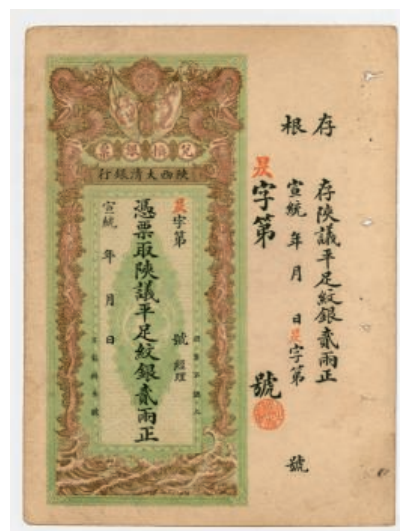 存根
存陝議平足紋銀貳兩正
宣統 年 月 日昃字第 號
昃字第 號
兌換銀票
陝西大清銀行
昃字第 號 經理
憑票取陝議平足紋銀貳兩正
宣統 年 月 日